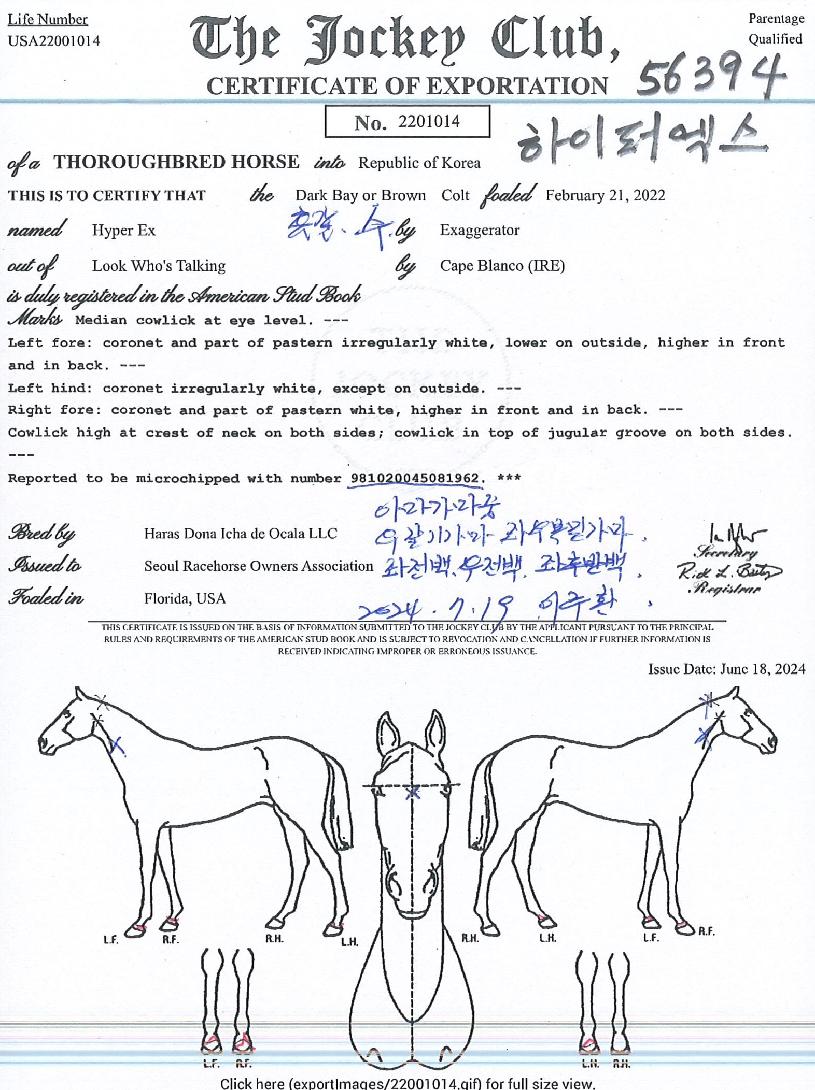 Life Number
USA22001014
Parentage
Qualified
The Jockey Club,
CERTIFICATE OF EXPORTATION
56394
No. 2201014
하이퍼엑스
of a THOROUGHBRED HORSE into Republic of Korea
THIS IS TO CERTIFY THAT the Dark Bay or Brown Colt foaled February 21, 2022
named Hyper Ex 흑갈. 수. by Exaggerator
out of Look Who's Talking by Cape Blanco (IRE)
is duly registered in the American Stud Book
Marks Median cowlick at eye level. ---
Left fore: coronet and part of pastern irregularly white, lower on outside, higher in front
and in back. ---
Left hind: coronet irregularly white, except on outside. ---
Right fore: coronet and part of pastern white, higher in front and in back. ---
Cowlick high at crest of neck on both sides; cowlick in top of jugular groove on both sides.
---
Reported to be microchipped with number 981020045081962. ***
Bred by Haras Dona Icha de Ocala LLC
Issued to Seoul Racehorse Owners Association 좌전백. 우전백. 좌후반백.
Secretary
Foaled in Florida, USA
Registrar
2024. 7. 19 이주환.
THIS CERTIFICATE IS ISSUED ON THE BASIS OF INFORMATION SUBMITTED TO THE JOCKEY CLUB BY THE APPLICANT PURSUANT TO THE PRINCIPAL
RULES AND REQUIREMENTS OF THE AMERICAN STUD BOOK AND IS SUBJECT TO REVOCATION AND CANCELLATION IF FURTHER INFORMATION IS
RECEIVED INDICATING IMPROPER OR ERRONEOUS ISSUANCE.
Issue Date: June 18, 2024
L.F. R.F. R.H. L.H. R.H. L.H. L.F. R.F.
L.F. R.F. L.H. R.H.
Click here (exportImages/22001014.gif) for full size view.